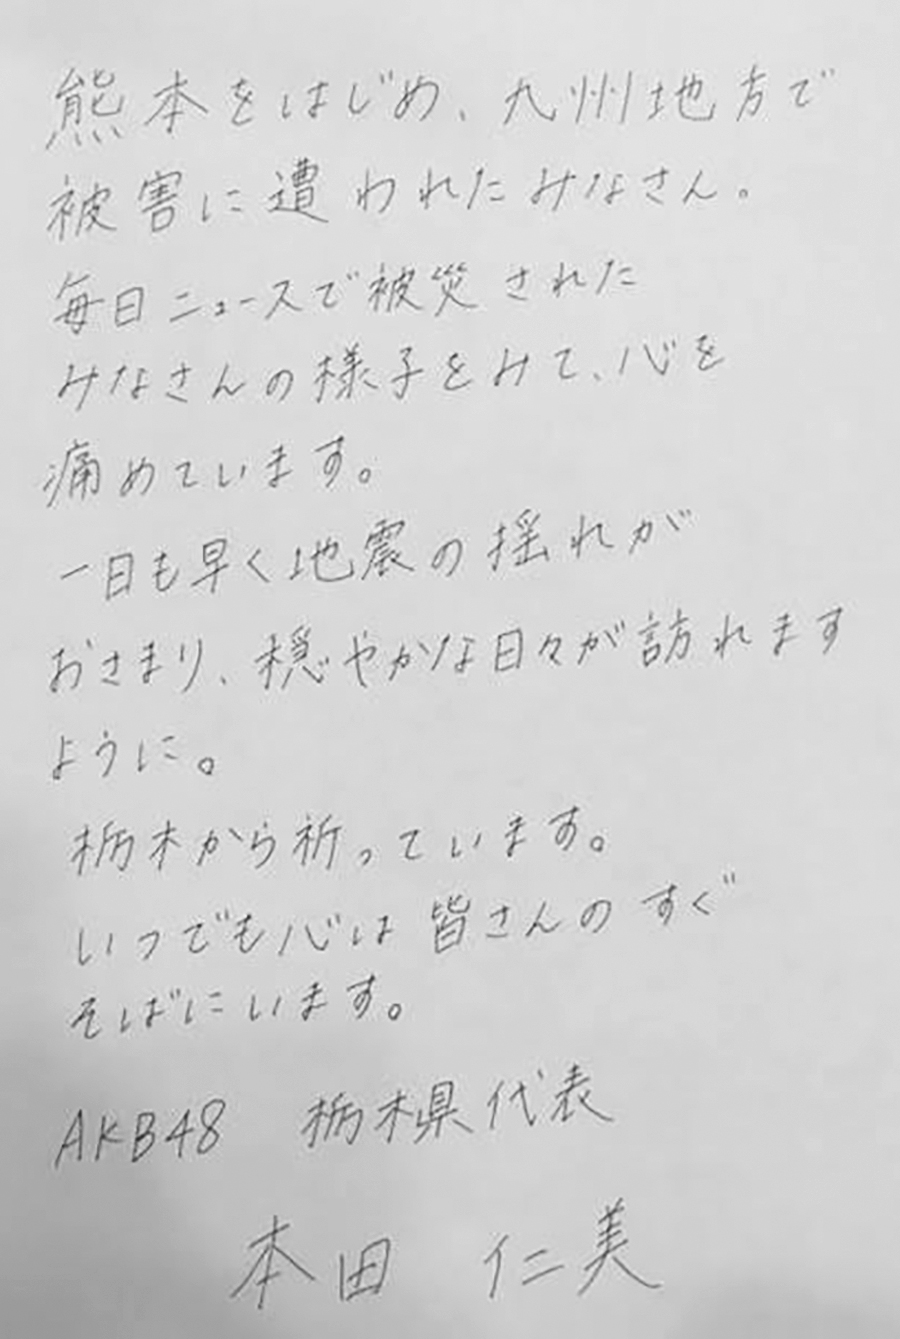 熊本をはじめ、九州地方で
被害に遭われたみなさん。
毎日ニュースで被災された
みなさんの様子をみて、心を
痛めています。
一日も早く地震の揺れが
おさまり、穏やかな日々が訪れます
ように。
栃木から祈っています。
いつでも心は皆さんのすぐ
そばにいます。
AKB48 栃木県代表
本田 仁美